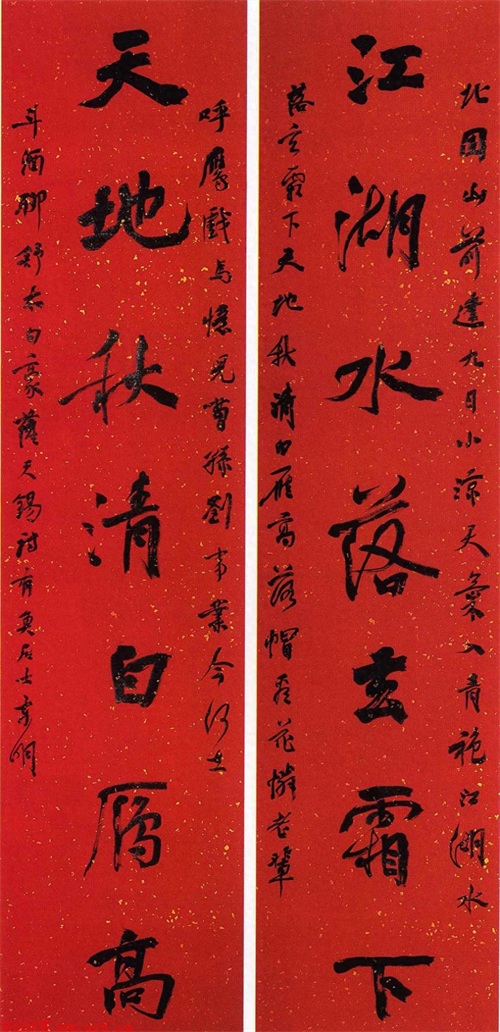 北固山前逢九日小涼天氣入青袍江湖水
江湖水落玄霜下
落玄霜下天地秋清白雁高落帽看花憐老輩
呼鷹戲馬憶兒曹孫劉事業今何在
天地秋清白雁高
斗酒聊舒太白豪薩天錫詩居士